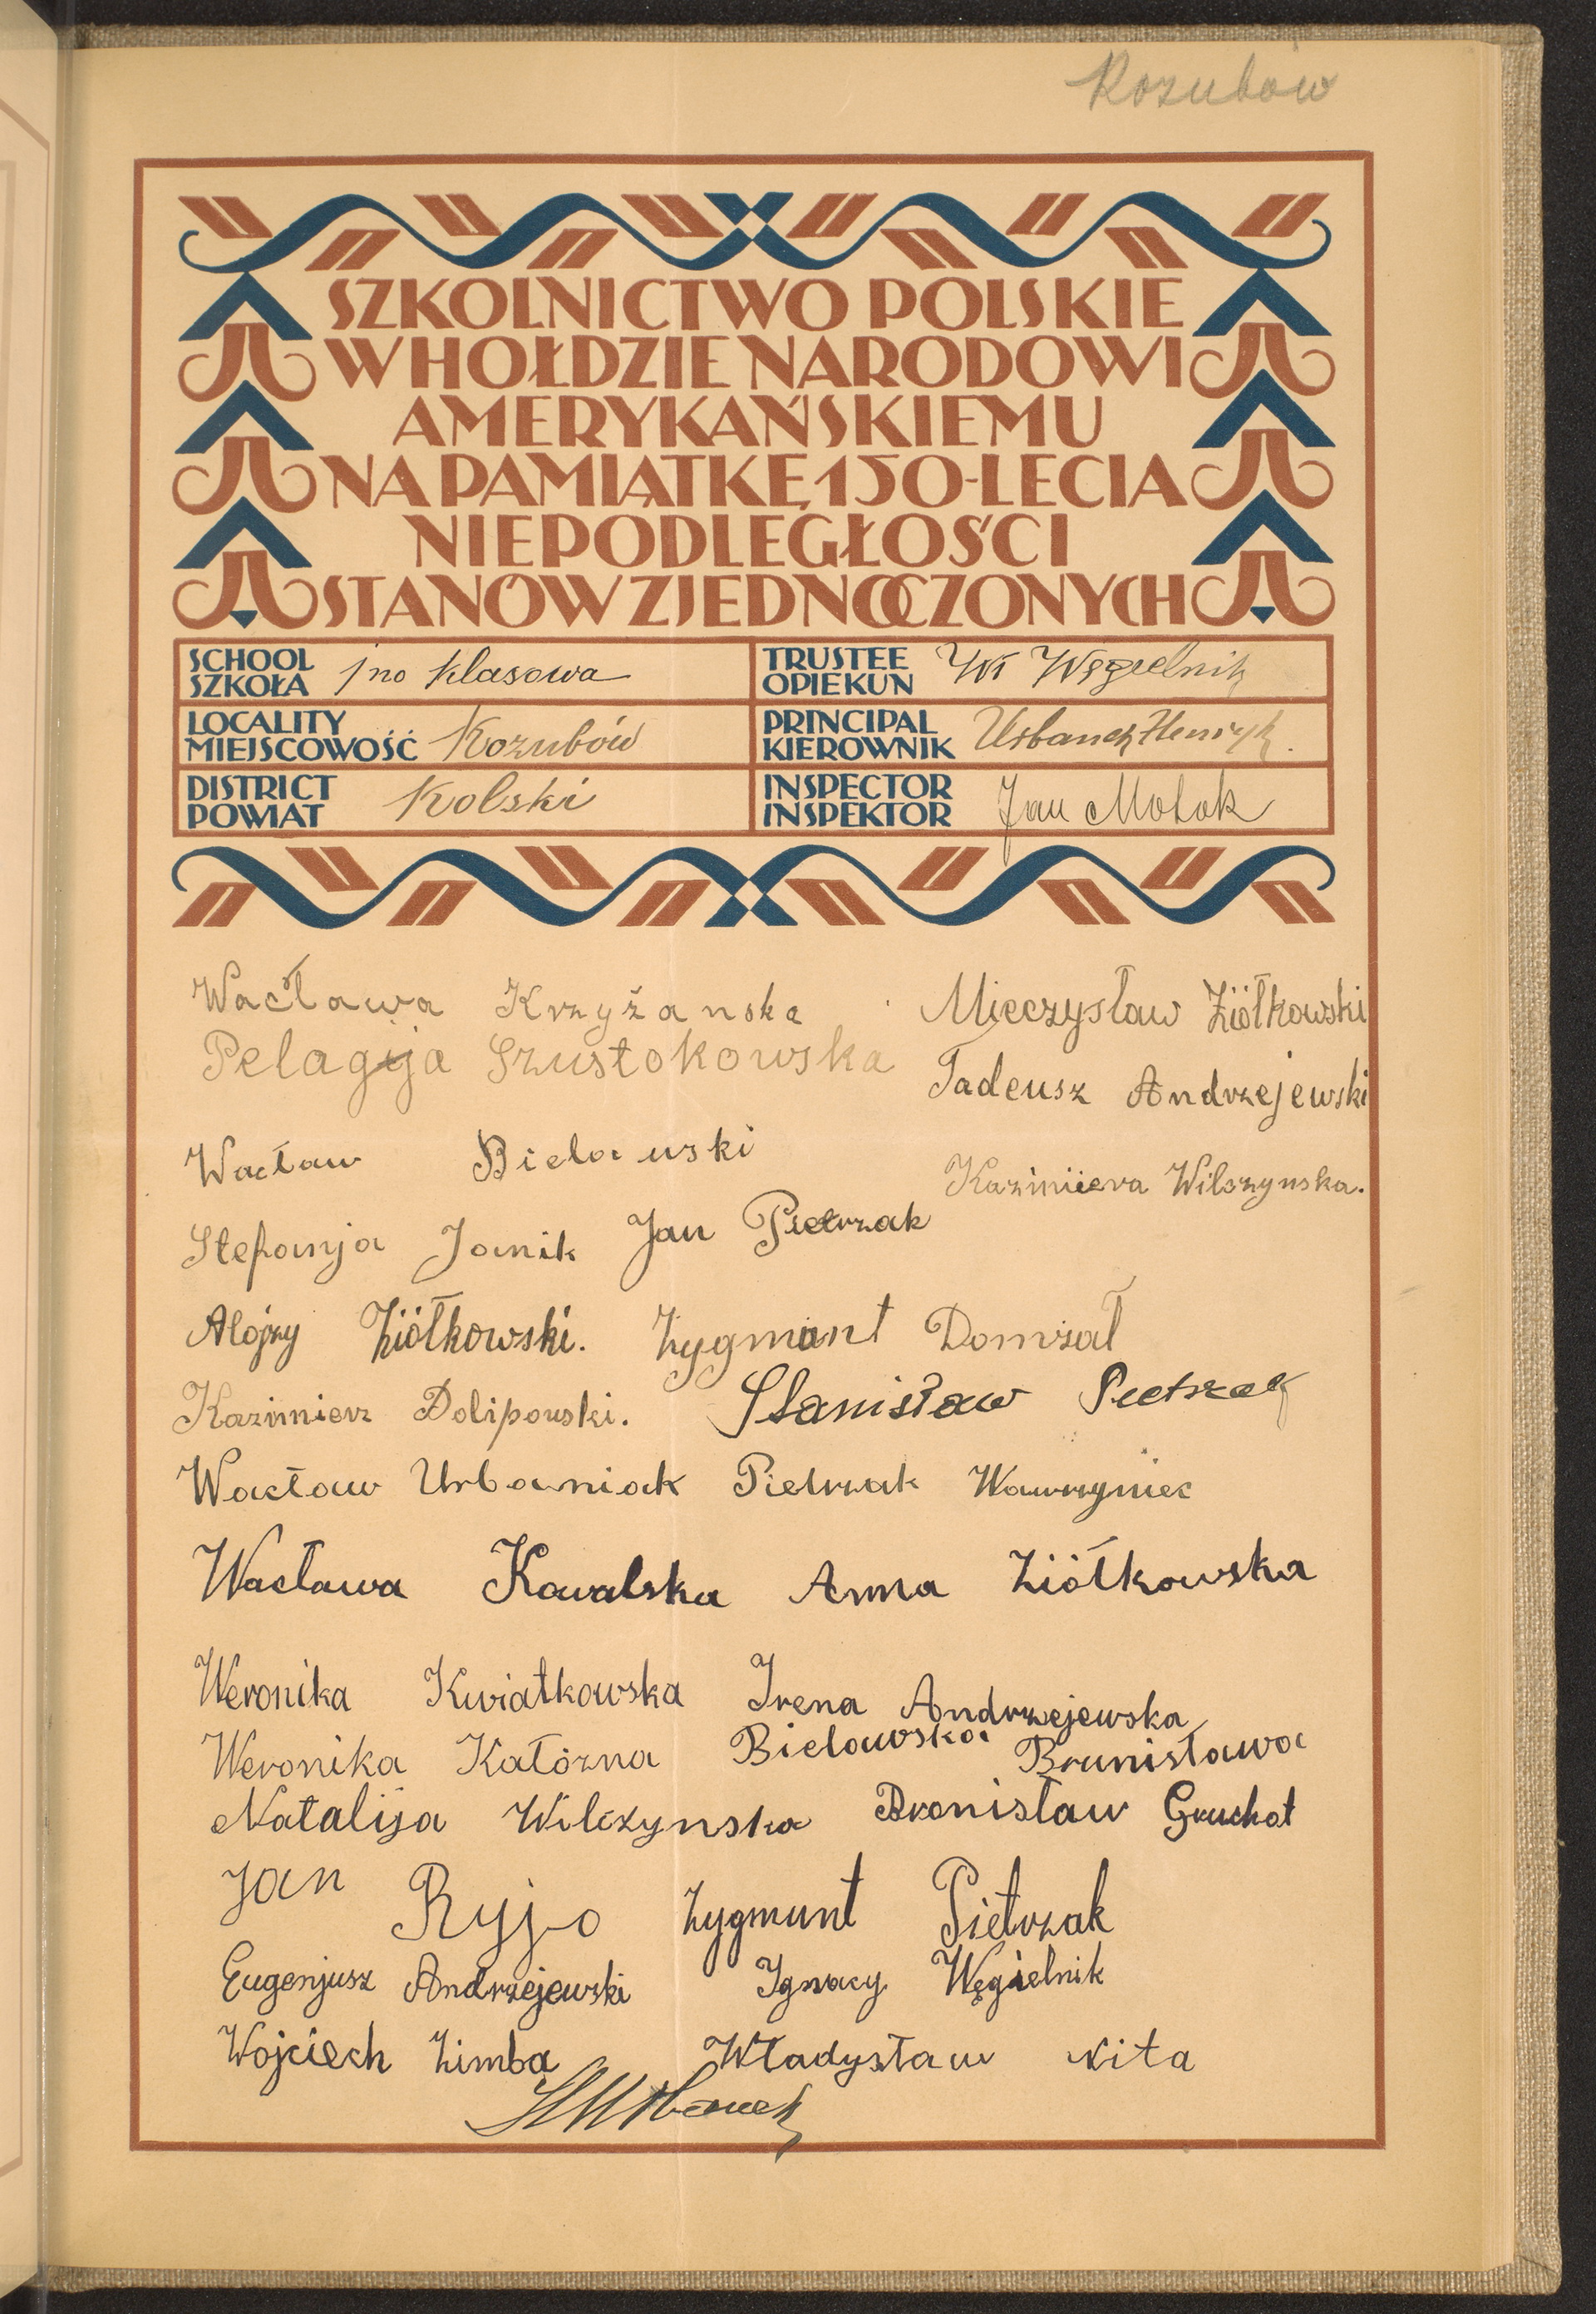 Kozubów
SZKOLNICTWO POLSKIE
W HOŁDZIE NARODOWI
AMERYKAŃSKIEMU
NA PAMIĄTKĘ 150-LECIA
NIEPODLEGŁOŚCI
STANÓW ZJEDNOCZONYCH
SCHOOL
SZKOŁA
1no klasowa
TRUSTEE
OPIEKUN
Wł Węgielnik
LOCALITY
MIEJSCOWOŚĆ
Kozubów
PRINCIPAL
KIEROWNIK
Urbanek Henryk.
DISTRICT
POWIAT
Kolski
INSPECTOR
INSPEKTOR
Jan
Wacława Krzyżanska Mieczysław Ziółkowski
Pelagija Szustokowska Tadeusz Andrzejewski
Wacław Bielawski Kazimiera Wilczynska.
Stefanja Janik Jan Pietrzak
Alojzy Ziółkowski. Zygmunt Domżał
Kazimierz Dolipowski. Stanisław Pietrzak
Wacław Urbaniak Pietrzak Wawrzyniec
Wacława Kowalska Anna Ziółkowska
Weronika Kwiatkowska Irena Andrzejewska
Weronika Katórna Bielawska Brunisława
Natalija Wilczynska Bronisław Gruchot
Jan Ryjo Zygmunt Pietrzak
Eugenjusz Andrzejewski Ignacy Węgielnik
Wojciech Zimba Władysław Nita
HUrbanek